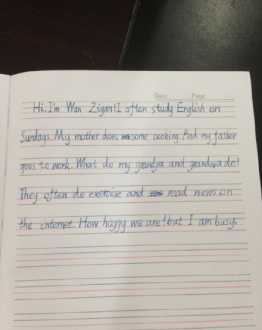 Date Page
Hi, I'm Wan Zigant! I often study English on
Sundays. My mother does some cooking. And my father
goes to work. What do my grandpa and grandma do?
They often do exercise and read news on
the internet. How happy we are! but I am busy.